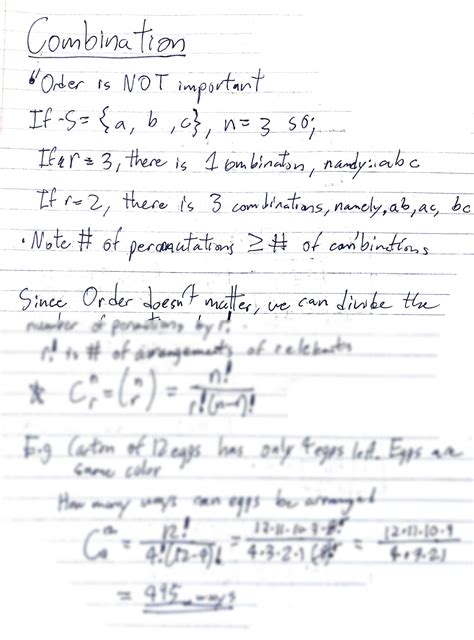 Combination
Order is NOT important
If S = {a, b, c}, n = 3 so;
If r = 3, there is 1 combination, namely: abc
If r = 2, there is 3 combinations, namely, ab, ac, bc
• Note # of permutations ≥ # of combinations
Since Order doesn't matter, we can divide the
number of permutations by r!
r! is # of arrangements of r elements
* C^n_r = (n r) = n! / r!(n-r)!
E.g Carton of 12 eggs has only 4 eggs left. Eggs are
same color
How many ways can eggs be arranged
= 12! / 4!(12-4)! = 12·11·10·9·8! / 4·3·2·1 (8)! = 12·11·10·9 / 4·3·2·1
= 495 ways